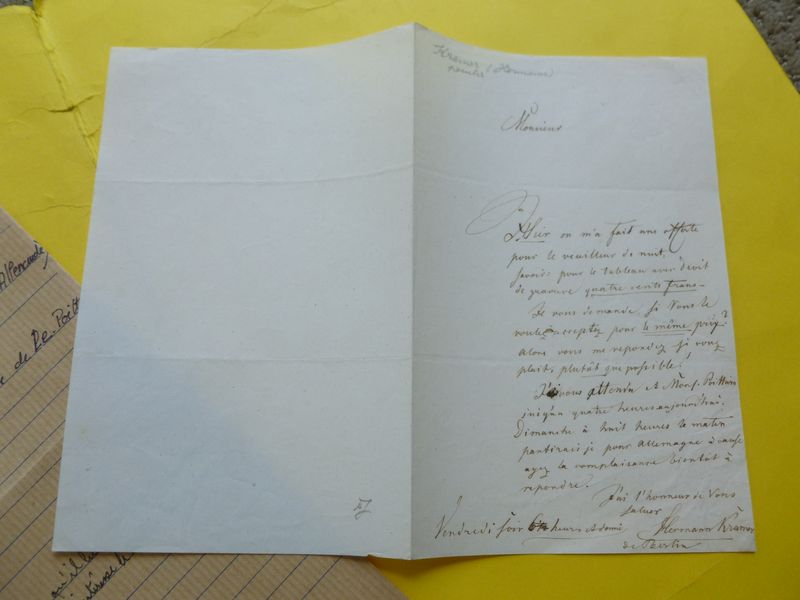 Kramer (Hermann)
peintre
Monsieur
Hier on m'a fait une offerte
pour le veuilleur de nuit,
savoir: pour le tableau avec droit
de gravure quatre cents frans.
Je vous demande, si Vous le
voulez acceptez pour le même prix?
alors vous me repondez si vous
plait, plutât que possible!
J'ai vous attendu et Mons. Poittevin
jusqu'au quatre heures aujourd'hui.
Dimanche à huit heures le matin
partirais je pour Allemagne à cause
ayez la complaisance bientôt à
repondre.
J'ai l'honneur de Vous
saluer
Vendredi soir heures et demi. Hermann Krämer
de Berlin
Allemande,
de De Poitt
qu'il l